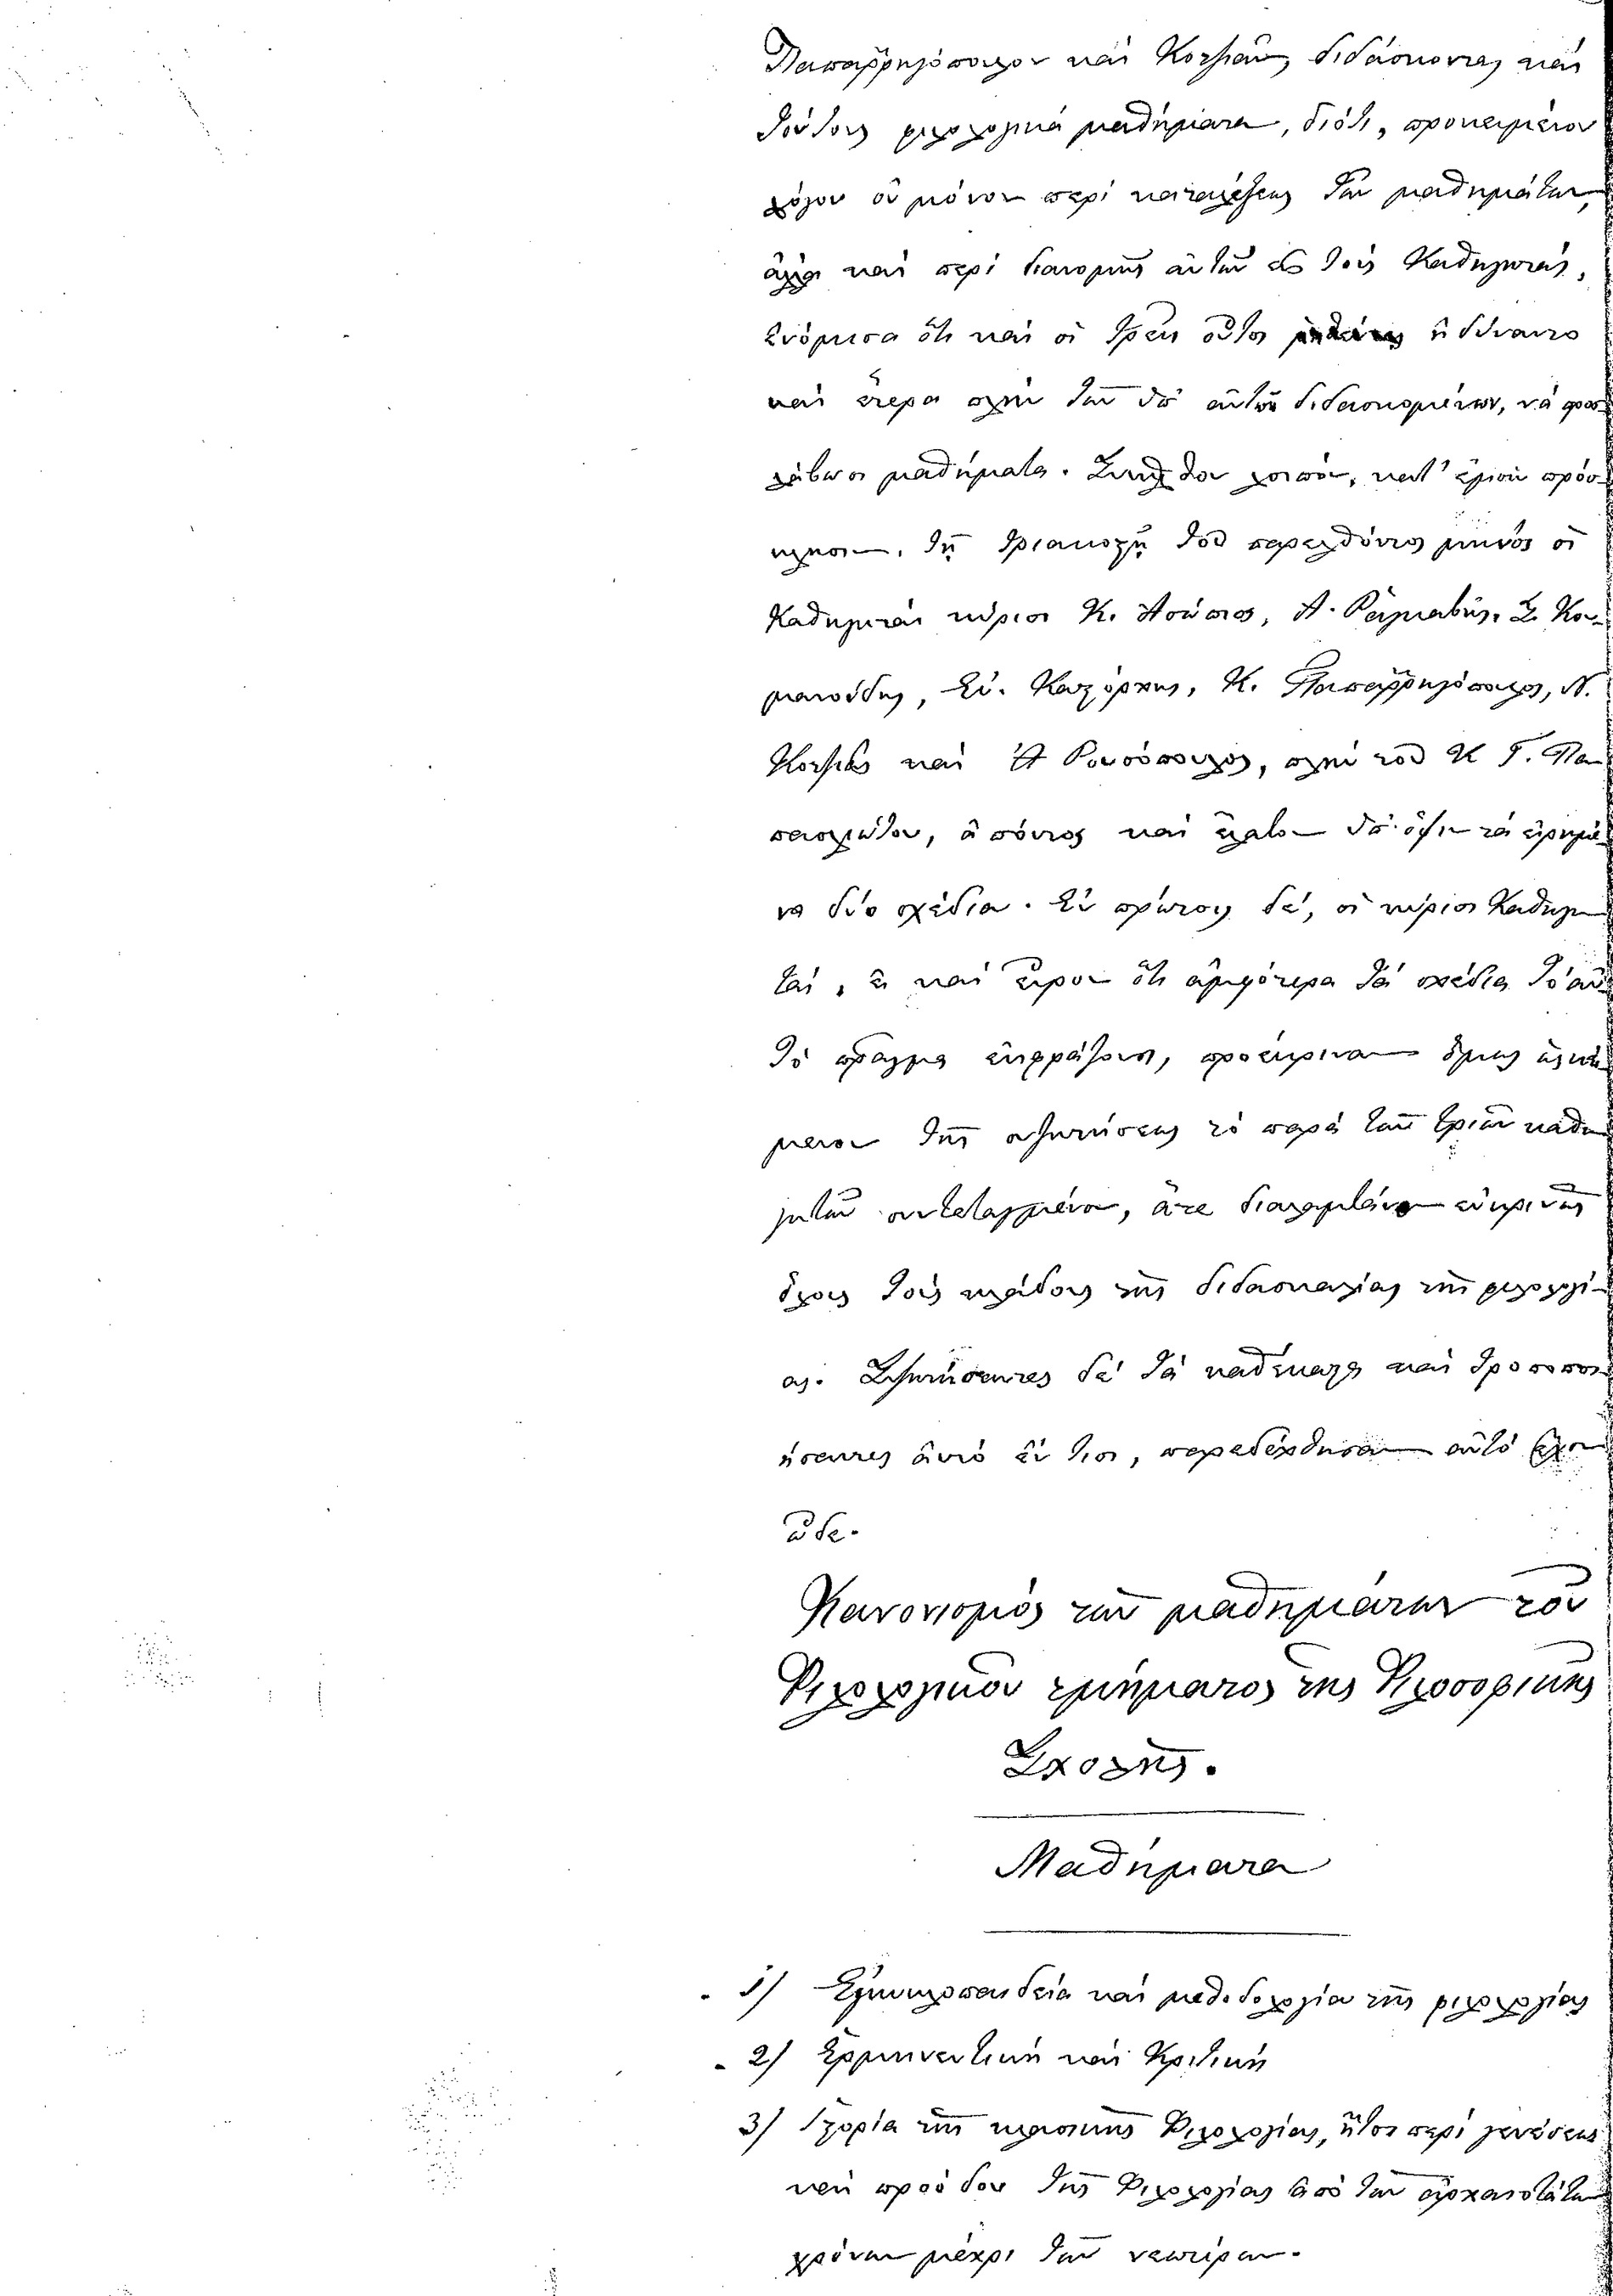 Παπαρρηγόπουλον καὶ Κοτζιᾶν, διδάσκοντας καὶ
τούτους φιλολογικὰ μαθήματα, διότι, προκειμένου
λόγου οὐ μόνον περὶ κατατάξεως τῶν μαθημάτων,
ἀλλὰ καὶ περὶ διανομῆς αὐτῶν εἰς τοὺς Καθηγητάς,
ἐνόμισα ὅτι καὶ οἱ τρεῖς οὗτοι ἠδύναντο
καὶ ἕτερα πλὴν τῶν ὑπ' αὐτῶν διδασκομένων, νὰ ἀνα-
λάβωσι μαθήματα. Συνῆλθον λοιπόν, κατ' ἐμὴν πρόσ-
κλησιν, τῇ τριακοστῇ τοῦ παρελθόντος μηνὸς οἱ
Καθηγηταὶ κύριοι Κ. Ἀσώπιος, Ἀ. Ῥαγκαβῆς, Σ. Κου-
μανούδης, Εὐ. Καστόρχης, Κ. Παπαρρηγόπουλος, Ν.
Κοτζιᾶς καὶ Ἀ Ῥουσόπουλος, πλὴν τοῦ Κ Γ. Πα-
πασλιώτου, ἀπόντος καὶ ἔλαβον ὑπ' ὄψιν τὰ εἰρημέ-
να δύο σχέδια. Ἐν πρώτοις δέ, οἱ κύριοι Καθηγη-
ταί, εἰ καὶ εὗρον ὅτι ἀμφότερα τὰ σχέδια τὸ αὐ-
τὸ πρᾶγμα ἐκφράζουσι, προέκριναν ὅμως ὡς κεί-
μενον τῆς συζητήσεως τὸ παρὰ τῶν τριῶν καθη-
γητῶν συντεταγμένον, ἅτε διαλαμβάνον εὐκρινῶς
ὅλους τοὺς κλάδους τῆς διδασκαλίας τῆς φιλολογί-
ας. Συζητήσαντες δὲ τὰ καθέκαστα καὶ τροποποι-
ήσαντες αὐτὸ ἔν τισι, παρεδέχθησαν αὐτὸ ἔχον
ὧδε.
Κανονισμὸς τῶν μαθημάτων τοῦ
Φιλολογικοῦ τμήματος τῆς Φιλοσοφικῆς
Σχολῆς.
Μαθήματα
1) Ἐγκυκλοπαιδεία καὶ μεθοδολογία τῆς φιλολογίας
2) Ἑρμηνευτικὴ καὶ Κριτικὴ
3) Ἱστορία τῆς κλασικῆς Φιλολογίας, ἤτοι περὶ γενέσεως
καὶ προόδου τῆς Φιλολογίας ἀπὸ τῶν ἀρχαιοτάτων
χρόνων μέχρι τῶν νεωτέρων.